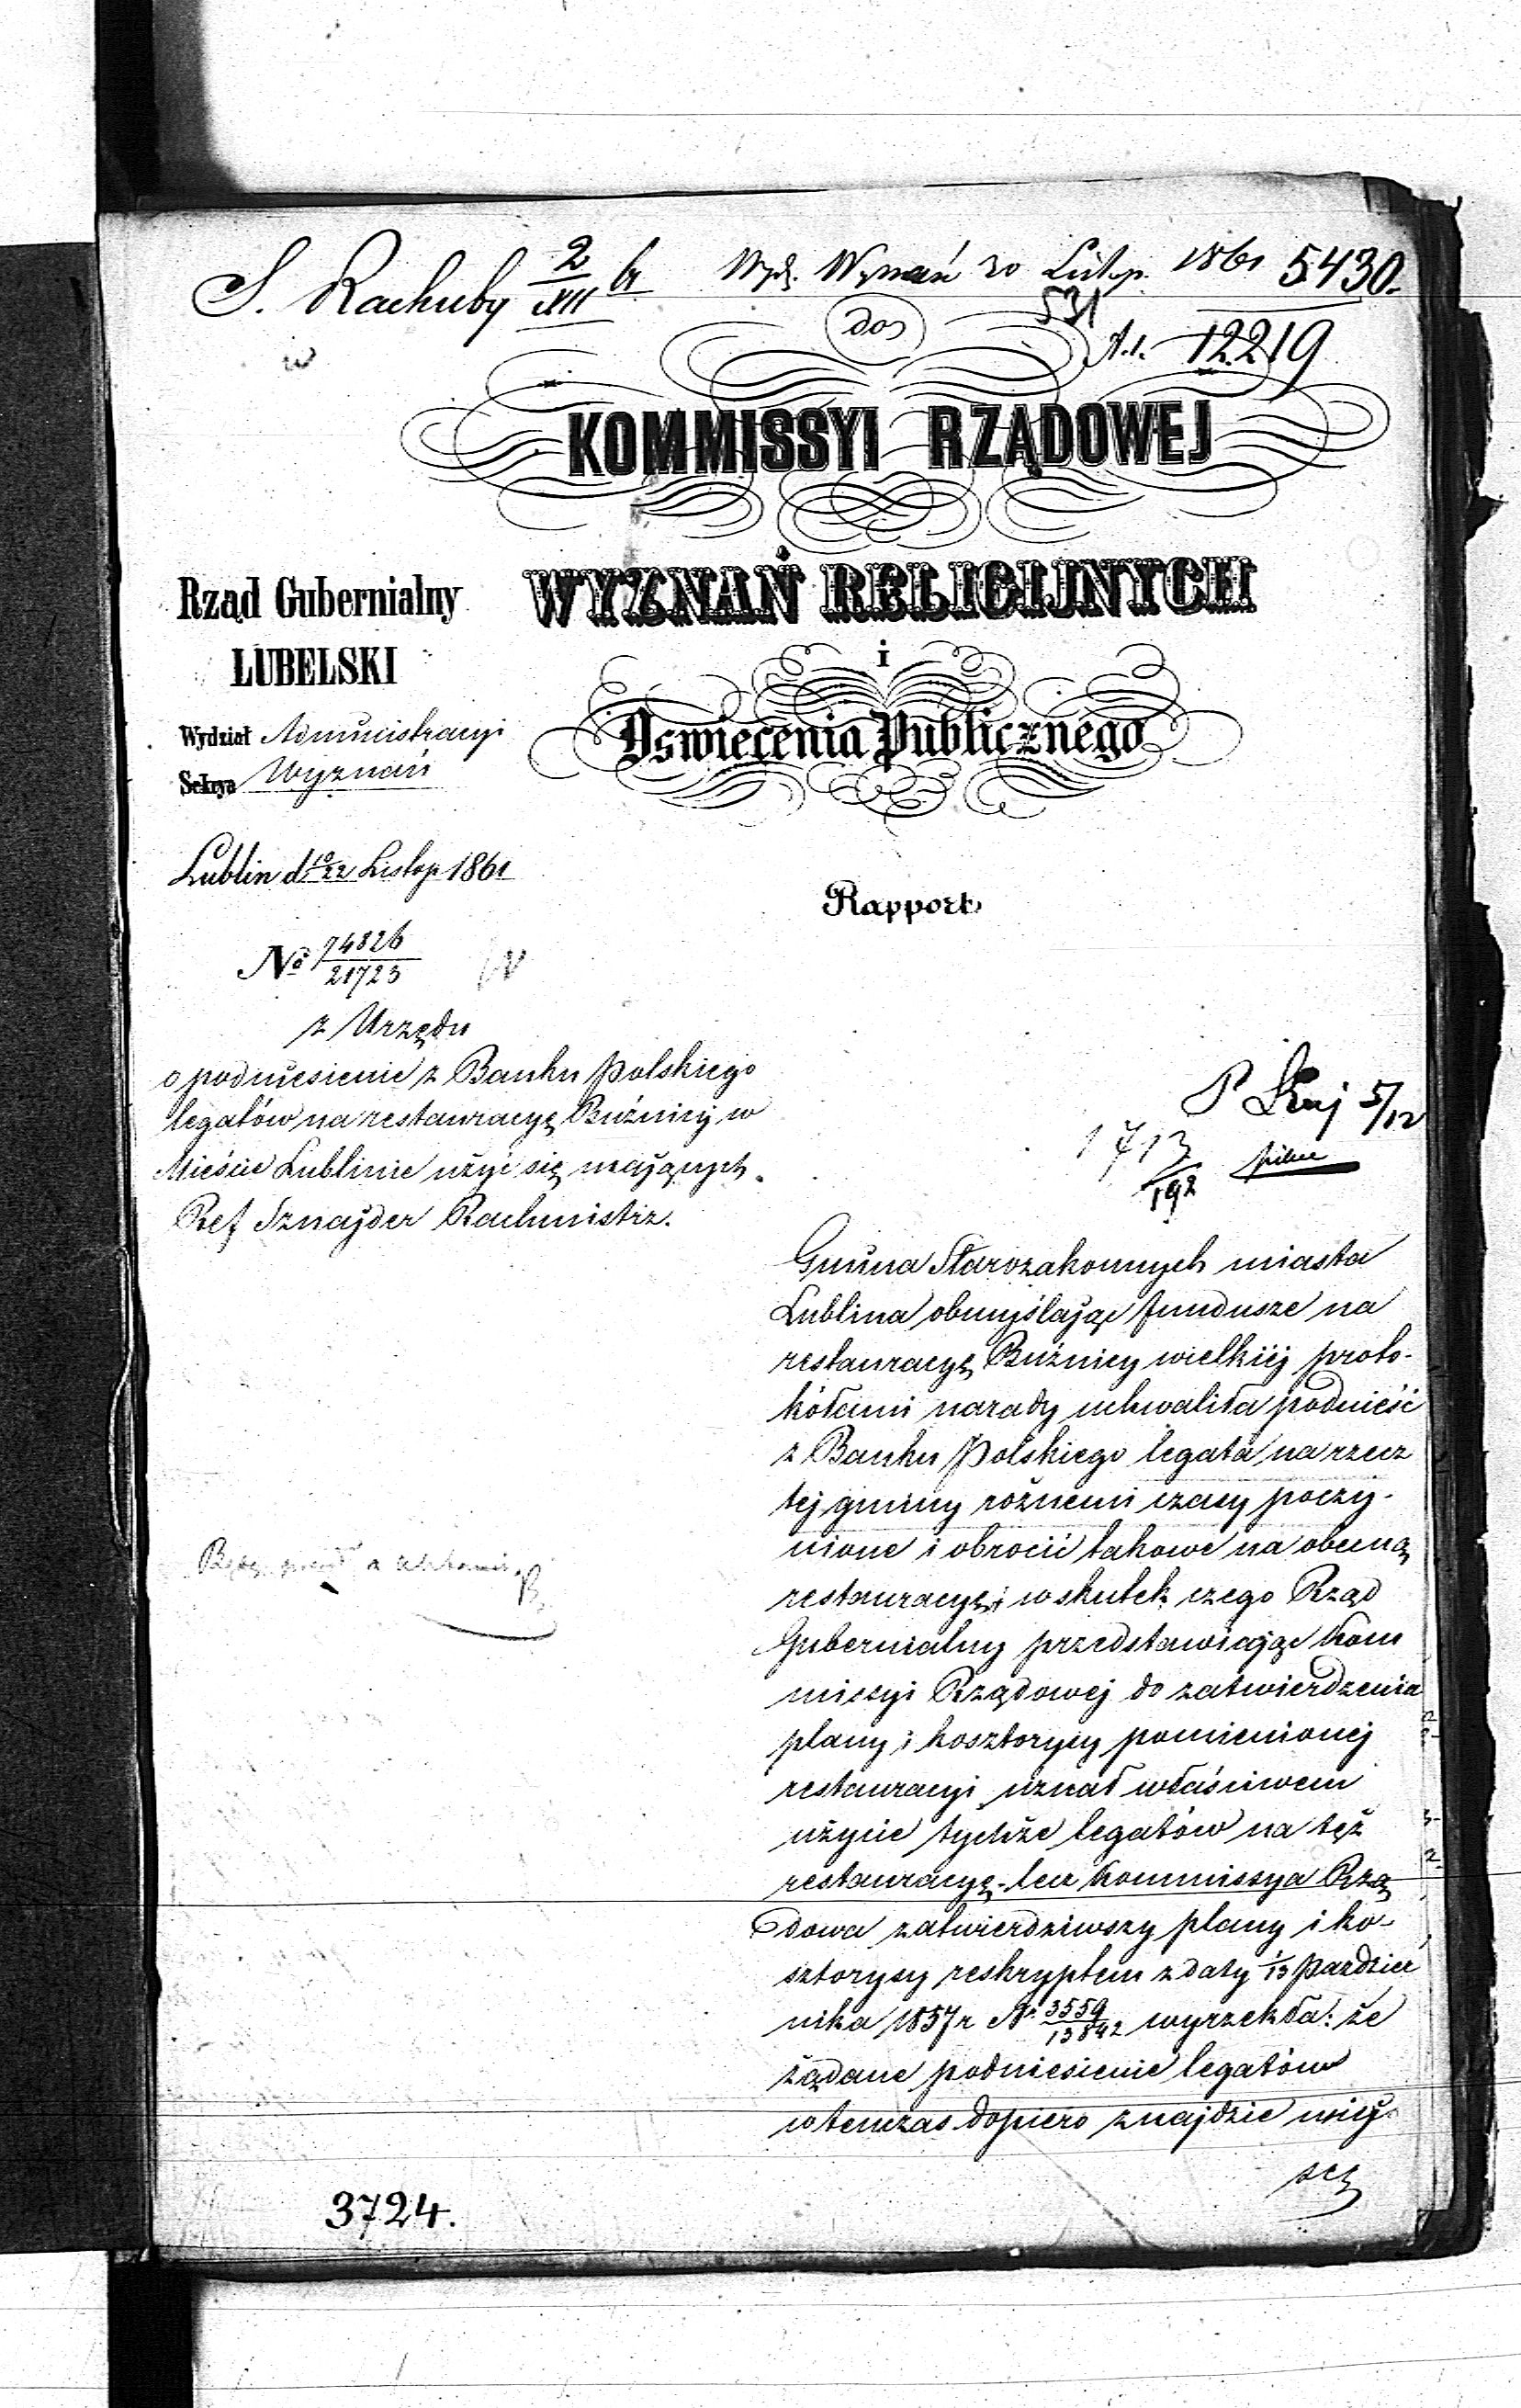 S. Rachuby 2/XII
Wyd. Wyznań 30 Listop. 1861 5430.
531
do
A.1. 12219
KOMMISSYI RZĄDOWEJ
WYZNAŃ RELIGIJNYCH
i
Oswiecenia Publicznego
Rząd Gubernialny
LUBELSKI
Wydział Administracyi
Sekcya Wyznań
Lublin d 10/22 Listop 1861
Rapport
No 74826/21723
z Urzędu
o podniesienie z Banku Polskiego
legatów na restauracyę Bużnicy w
Mieście Lublinie użyć się mających.
Ref Sznajder Rachmistrz.
5/12
1713/192 pilne
Gmina Starozakonnych miasta
Lublina obmyślając fundusze na
restauracyę Bużnicy wielkiéj proto-
kółami narady uchwaliła podnieść
z Banku Polskiego legata na rzecz
téj gminy rożnemi czasy poczy-
nione i obrocić takowe na obecną
restauracyę; wskutek czego Rząd
Gubernialny przedstawiając Kom
missyi Rządowej do zatwierdzenia
plany i kosztorysy pomienionej
restauracyi uznał właściwem
użycie tychże legatów na też
restauracyę - lecz Kommissya Rzą
dowa zatwierdziwszy plany i ko-
sztorysy reskryptem z daty 1/13 Pazdzier
nika 1857 r No 3559/13842 wyrzekła: że
żądane podniesienie legatów
wtenczas dopiero znajdzie miej-
sce
3724.